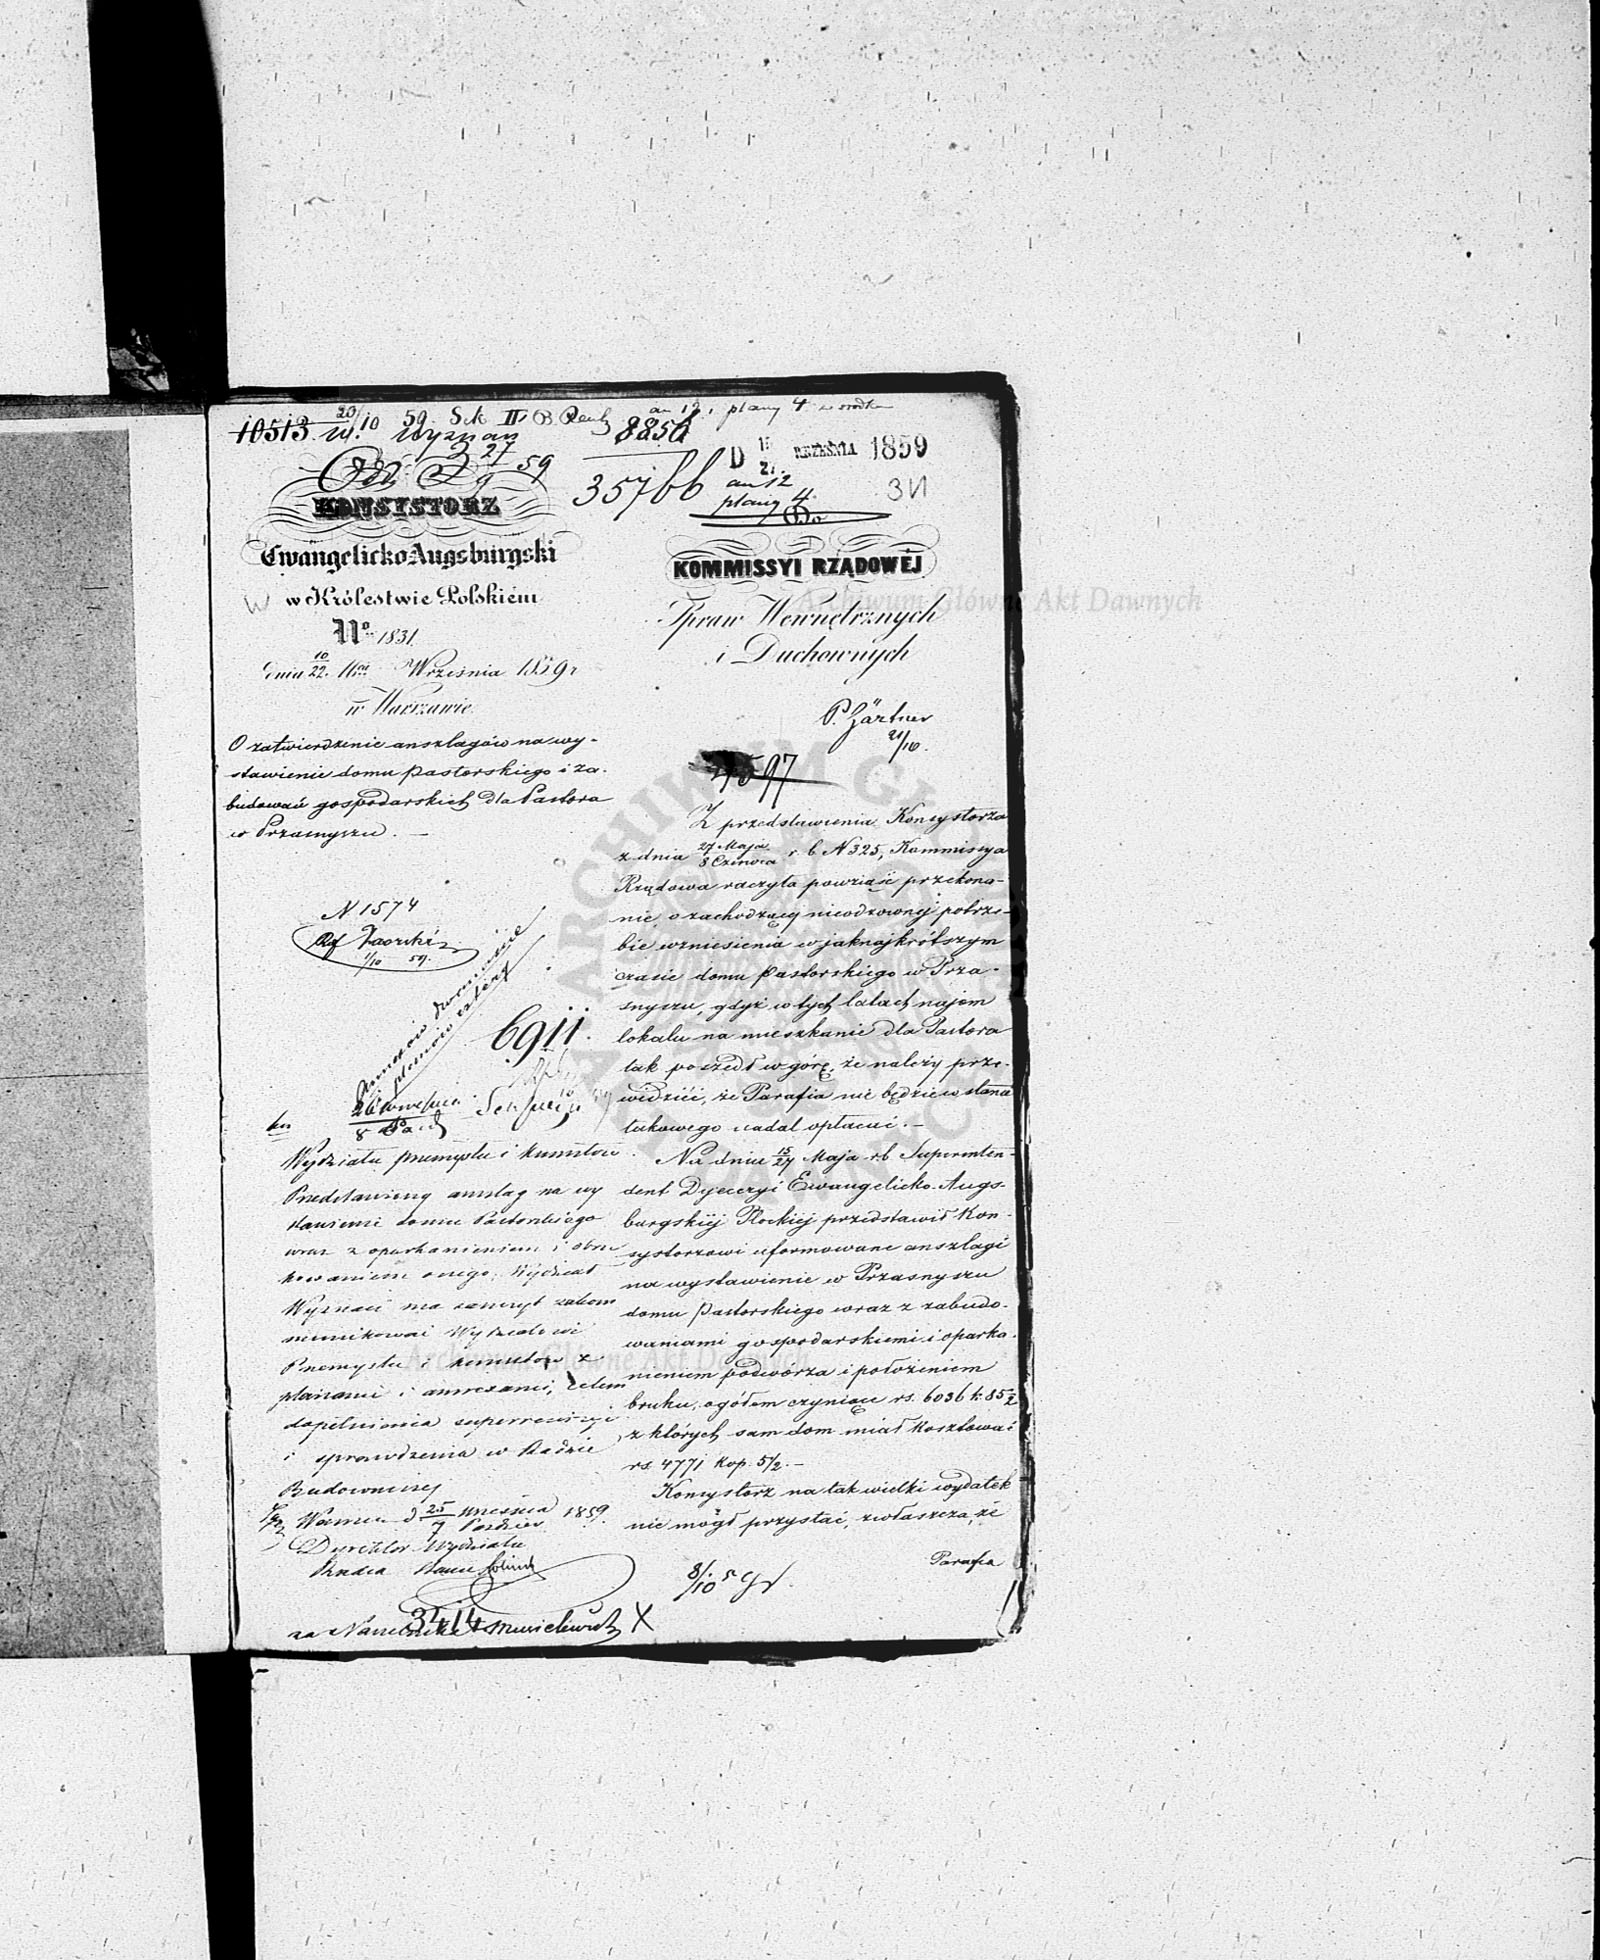 10513 20/10 59. Sek II
Wyznań
8856
an 12, plany 4 w środku
27/9 59
35766
D 15/27 WRZEŚNIA 1859
an 12
plany 4.
KONSYSTORZ
Ewangelicko Augsburgski
w Królestwie Polskiém
No 1831.
dnia 10/22 Września 1859 r
w Warszawie
O zatwierdzenie anszlagów na wy-
stawienie domu pastorskiego i za-
budowań gospodarskich dla Pastora
w Przasnyszu. —
Do
KOMMISSYI RZĄDOWÉJ
Spraw Wewnętrznych
i Duchownych
P. Gärtner
21/10.
4597
Z przedstawienia Konsystorza
z dnia 27 Maja/8 Czerwca r. b N 325, Kommissya
Rządowa raczyła powziąść przekona-
nie, o zachodzącej nieodzownej potrze-
bie wzniesienia w jaknajkrótszym
czasie domu pastorskiego w Prza-
snyszu, gdyż w tych latach najem
lokalu na mieszkanie dla Pastora
tak poszedł w górę, że należy prze-
widzieć, że Parafia nie będzie w stanie
takowego nadal opłacać. —
Na dniu 15/27 Maja r b Superinten-
dent Dyecezyi Ewangelicko-Augs-
burgskiéj Płockiéj przedstawił Kon-
systorzowi uformowane anszlagi
na wystawienie w Przasnyszu
domu pastorskiego wraz z zabudo-
waniami gospodarskiemi i oparka-
nieniem podwórza i położeniem
bruku, ogółem czyniące rs. 6036 k. 85 1/2
z których sam dom miał kosztować
rs. 4771 kop. 5 1/2. —
Konsystorz na tak wielki wydatek
nie mógł przystać, zwłaszcza, że
Parafia
N 1574
1/10 59.
6911.
Wydziału przemysłu i kunsztów
Przedstawiony anszlag na wy
stawienie domu Pastorskiego
wraz z oparkanieniem i obru
kowaniem onego, Wydział
Wyznań ma zaszczyt zakom
munikować Wydziałowi
Przemysłu i kunsztów z
planami i annexami, celem
dopełnienia superrewizyi
i sprawdzenia w Radzie
Budowniczej
Warszawa d 25 Września/7 Paździer 1859.
Dyrektor Wydziału
Radca Stanu
8/10
3414
za Naczelnika
X
Archiwum Główne Akt Dawnych
Archiwum Główne Akt Dawnych